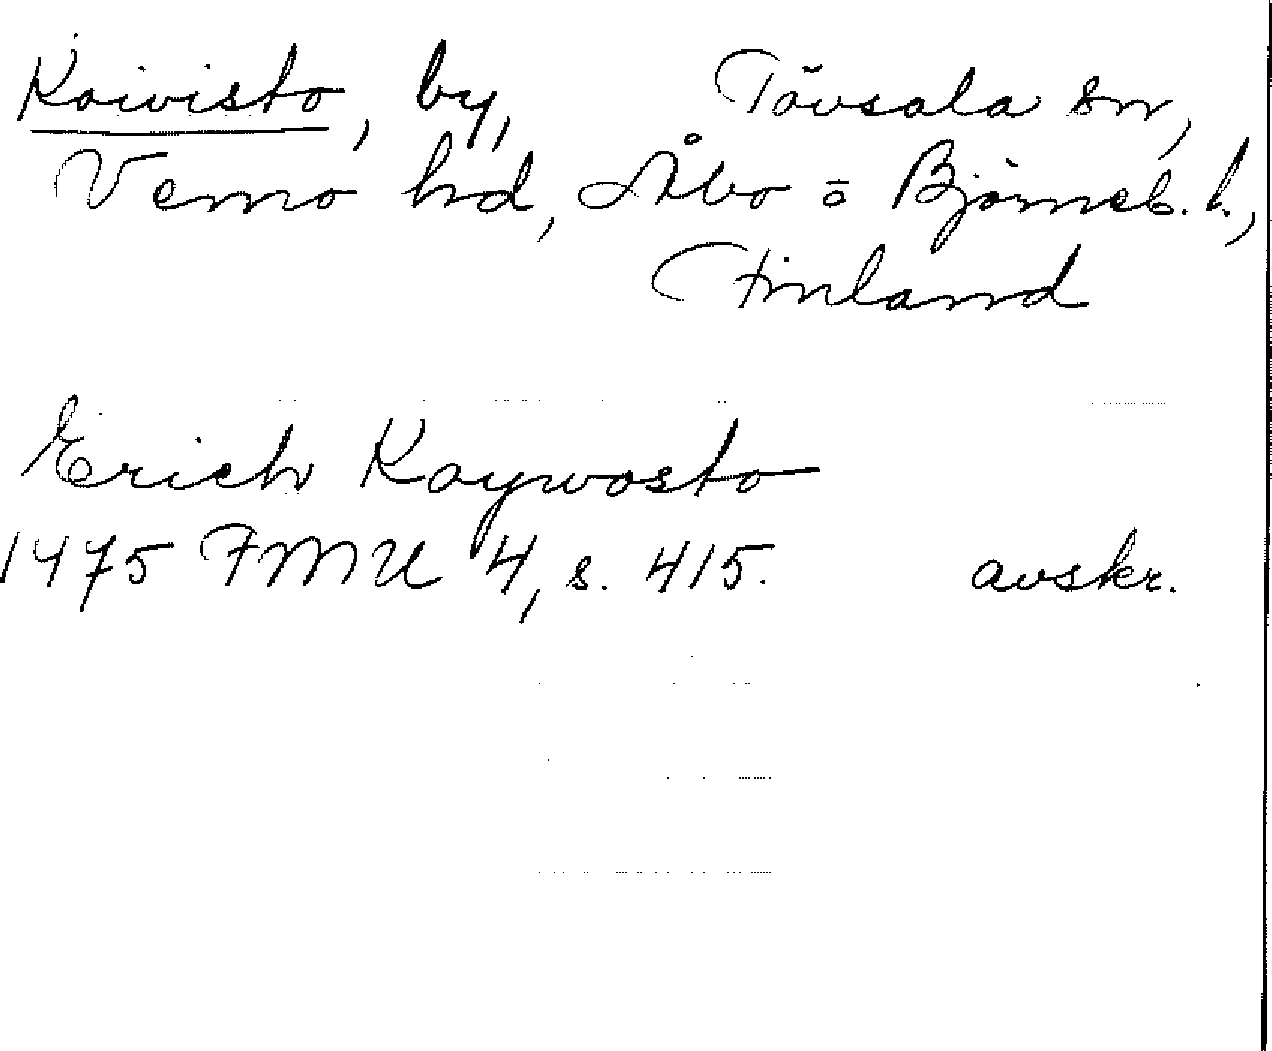 Koivisto, by, Tövsala sn,
Vemo hd, Åbo o Björneb. l.,
Finland
Erich Koywosto
1475 FMU 4, s. 415. avskr.